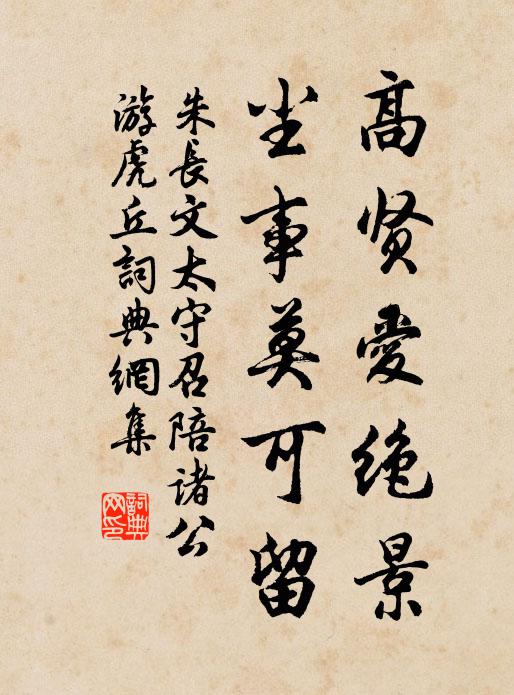 高贤爱绝景
尘事莫可留
朱長文太守召陪诸公
游虎丘詞典網集
詞典
网印